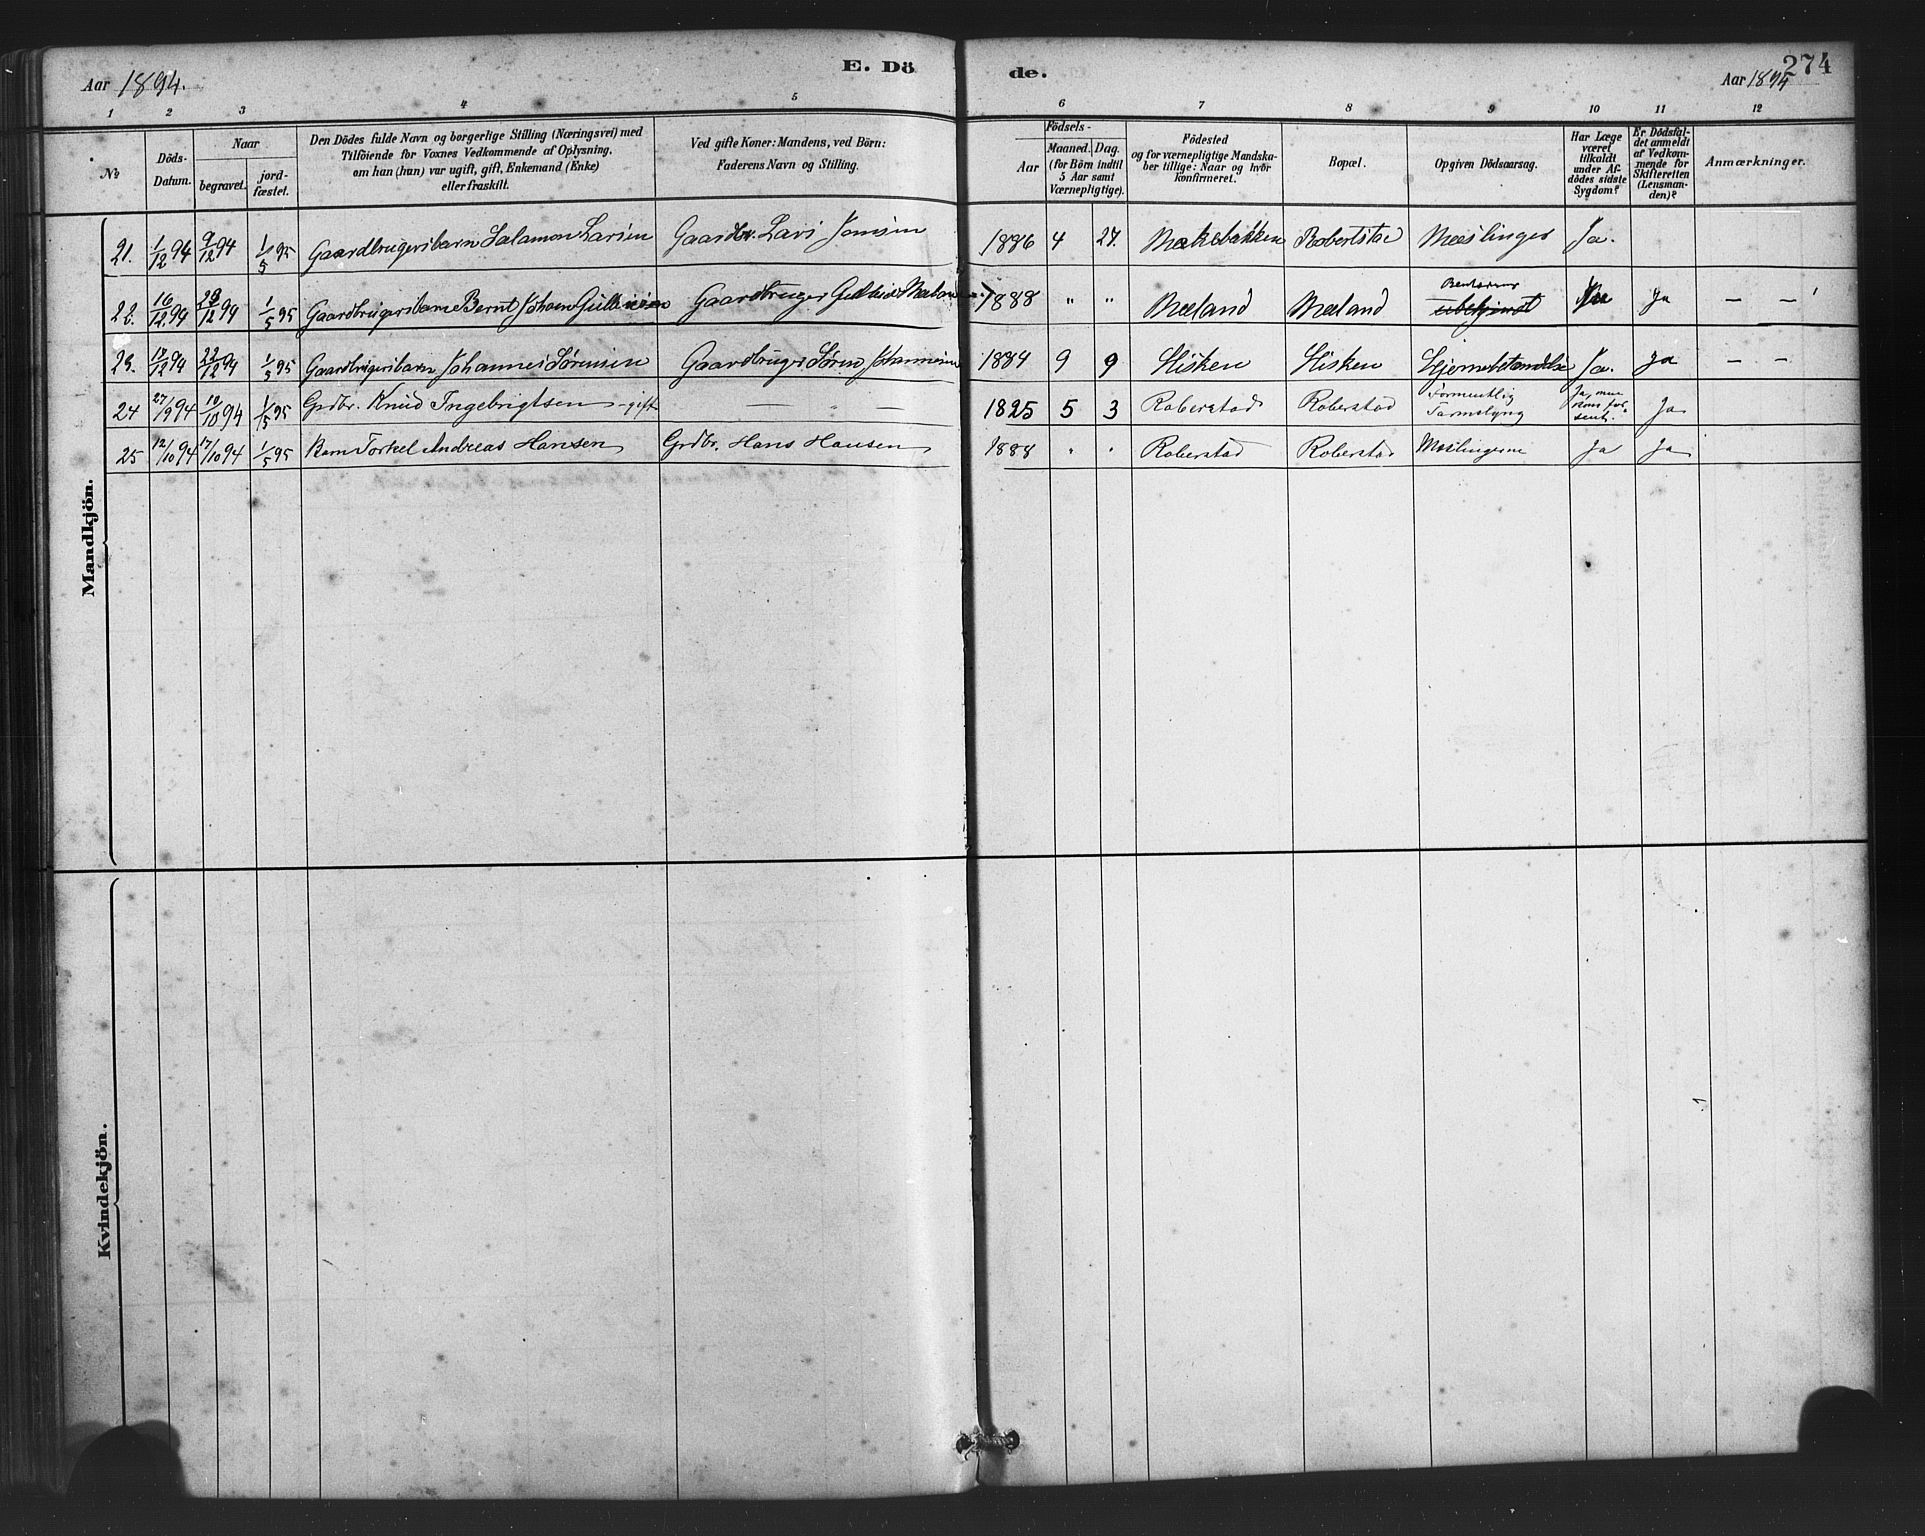 Aar 1894.
E. Dö
de.
Aar 1894
274
1 2 3 4 5 6 7 8 9 10 11 12
No
Döds-
Datum.
Naar
begravet.
jord-
fæstet.
Den Dödes fulde Navn og borgerlige Stilling (Næringsvei) med
Tilföiende for Voxnes Vedkommende af Oplysning,
om han (hun) var ugift, gift, Enkemand (Enke)
eller fraskilt.
Ved gifte Koner: Mandens, ved Börn:
Faderens Navn og Stilling.
Födsels-
Aar
Maaned. Dag.
(for Börn indtil
5 Aar samt
Værnepligtige).
Födested
og for værnepligtige Mandska-
ber tillige: Naar og hvor
konfirmeret.
Bopæl.
Opgiven Dödsaarsag.
Har Læge
været
tilkaldt
under Af-
dödes sidste
Sygdom?
Er Dödsfal-
det anmeldt
af Vedkom-
mende for
Skifteretten
(Lensman-
den)?
Anmærkninger.
Mandkjön.
21. 1/12 94 9/12 94 1/5 95 Gaardbrugersbarn Salamon Larsen Gaardbr. Lars Jonsen 1886 4 27. Robertstad Meslinger Ja.
22. 16/12 94 1/5 95 Gaardbrugersbarn Bernt Johan Gaardbruger 1888 " " Mæland Mæland ubekjendt Ja — —
23. 22/12 94 1/5 95 Gaardbrugersbarn Johannes Sørensen Gaardbruger Søren Johannesen 1884 9 9 Hisken Hisken Hjernebetændelse Ja. Ja — —
24 27/9 94 10/10 94 1/5 95 Grdbr. Knud Ingebrigtsen - gift — " — 1825 5 3 Roberstad Roberstad Formentlig Tarmslyng Ja, men kom for sent. Ja
25 12/10 94 17/10 94 1/5 95 Barn Torkel Andreas Hansen Grdbr. Hans Hansen 1888 " " Roberstad Roberstad Meslingerne Ja Ja
Kvindekjön.